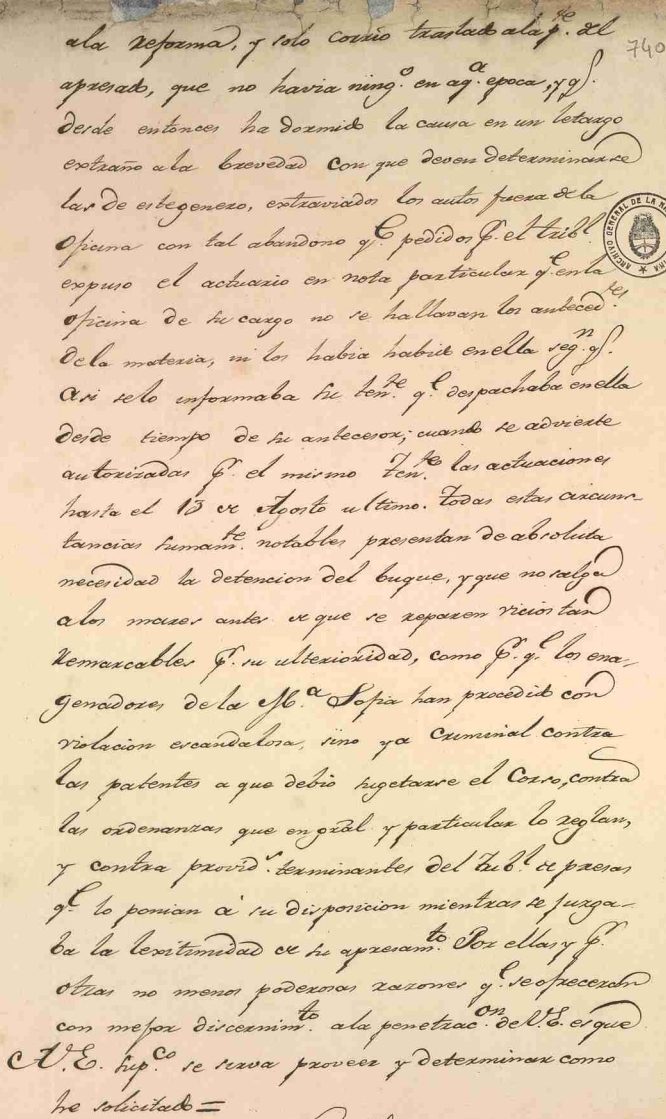 ala reforma, y solo corrio traslado ala p.te del
740
apresado, que no havia ning.o en aq.a epoca, y q.e
desde entonces ha dormido la causa en un letargo
extraño ala brevedad con que deven determinarse
las de este genero, extraviados los autos fuera dela
oficina con tal abandono q.e pedidos p.r el trib.l
expuso el actuario en nota particular q.e en la
oficina de su cargo no se hallavan los anteced.tes
dela materia, ni los habia habido en ella seg.n q.e
asi selo informaba su ten.te q.e despachaba en ella
desde tiempo de su antecesor; cuando se advierte
autorizadas p.r el mismo Ten.te las actuaciones
hasta el 13 de Agosto ultimo. Todas estas circuns-
tancias sumam.te notables presentan de absoluta
necesidad la detencion del buque, y que no salga
alos mares antes de que se reparen vicios tan
remarcables p.r su ulterioridad, como p.r q.e los ena-
genadores de la M.a Sofia han procedido con
violacion escandalosa, sino ya Criminal contra
las patentes a que debio sugetarse el Corso, contra
las ordenanzas que en gral y particular lo reglan,
y contra provid.s terminantes del Trib.l de presas
q.e lo ponian á su disposicion mientras se juzga-
ba la lexitimidad de su apresam.to Por ellas y p.r
otras no menos poderosas razones q.e se ofreceran
con mejor discernim.to ala penetrac.on de V.E. es que
A V.E. sup.co se sirva proveer y determinar como
he solicitado =
ARCHIVO GENERAL DE LA